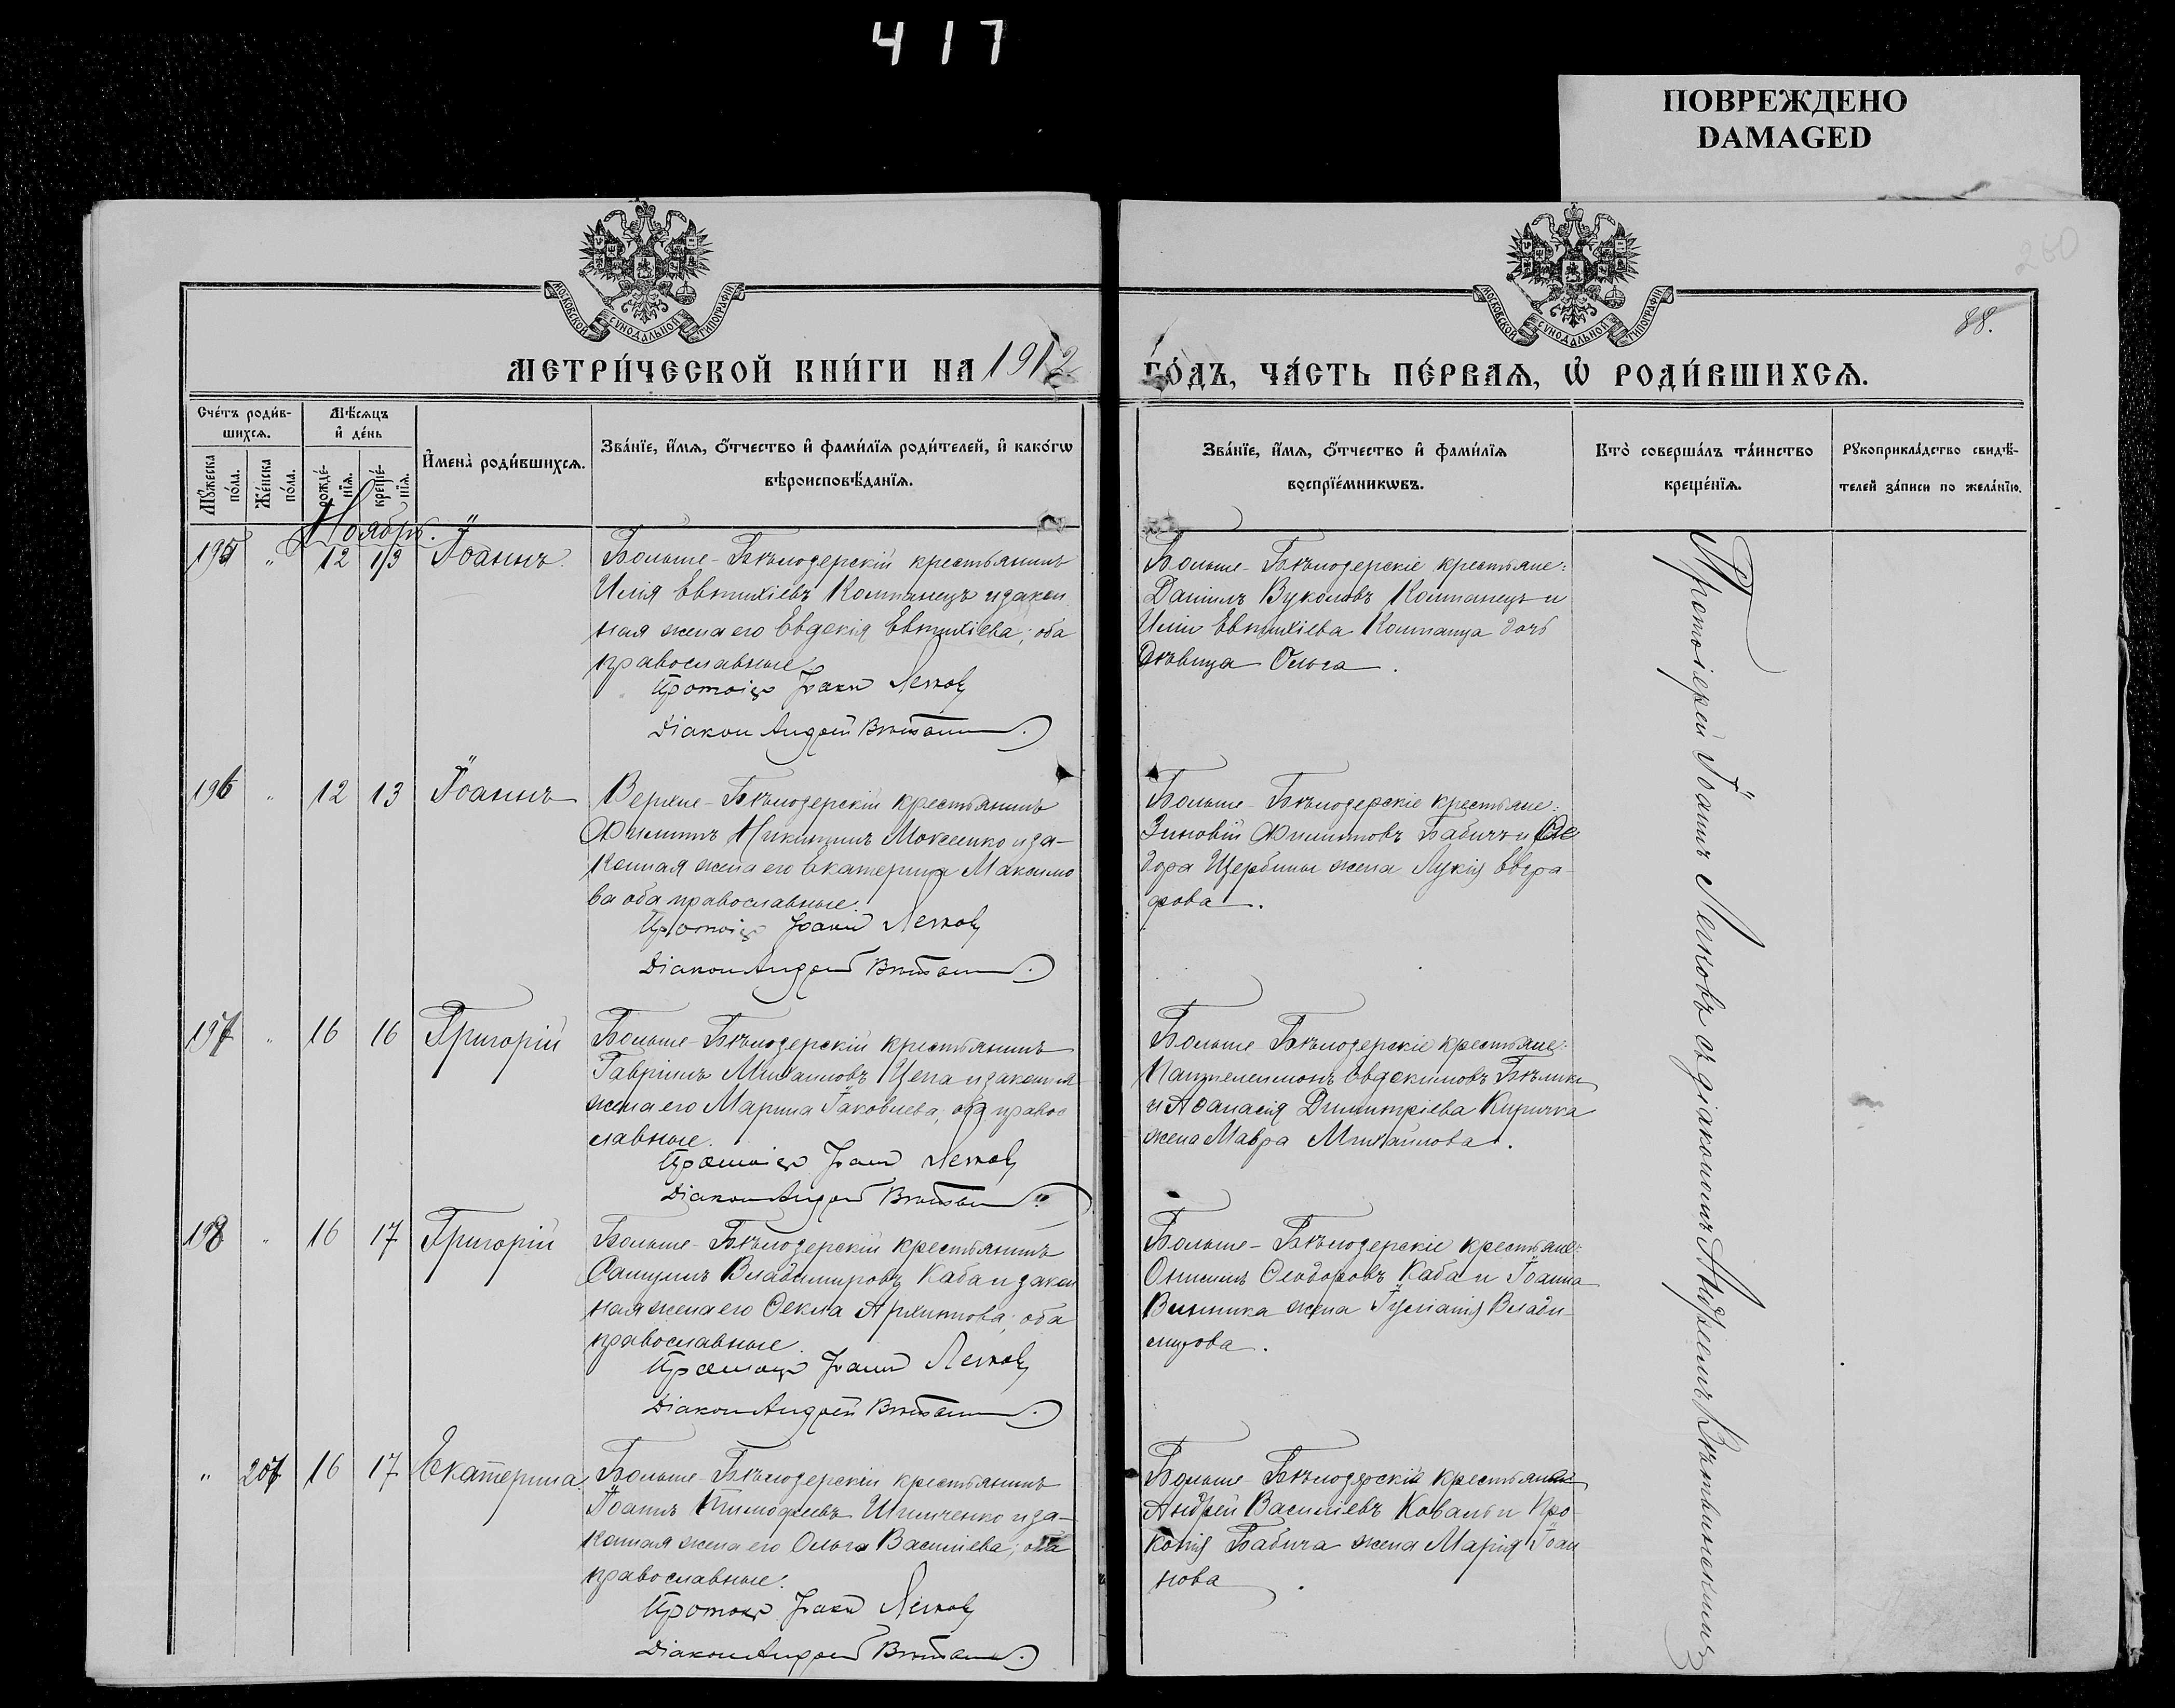 417
ПОВРЕЖДЕНО
DAMAGED
260
88.
МОСКОВСКОЙ СУНОДАЛЬНОЙ ТИПОГРАФІИ
МОСКОВСКОЙ СУНОДАЛЬНОЙ ТИПОГРАФІИ
МЕТРИ́ЧЕСКОЙ КНИ́ГИ НА 1912
ГО́ДЪ, ЧА́СТЬ ПЕ́РВАѦ, Ѡ҆ РОДИ́ВШИХСѦ.
Сче́тъ роди́в-
шихсѧ.
Мѣ́сѧцъ
и҆ де́нь
Мꙋ́жеска
по́ла.
Же́нска
по́ла.
рожде́-
нїѧ.
креще́-
нїѧ.
И҆мена̀ роди́вшихсѧ.
Зва́нїе, и҆́мѧ, ѻ҆́тчество и҆ фами́лїѧ роди́телей, и҆ како́гѡ
вѣроисповѣ́данїѧ.
Зва́нїе, и҆́мѧ, ѻ҆́тчество и҆ фами́лїѧ
воспрїе́мникѡвъ.
Кто̀ соверша́лъ та́инство
креще́нїѧ.
Рꙋкоприкла́дство свидѣ́-
телей за́писи по жела́нїю.
Ноябрь.
195 " 12 13 Іоаннъ.
Больше-Бѣлозерскій крестьянинъ
Илія Евтихіевъ Компанецъ и закон
ная жена его Евдокія Евтихіева; оба
православные
Протоіер Іоанн Легков
Діакон Андрей
Больше-Бѣлозерскіе крестьяне:
Даніилъ Вуколовъ Компанецъ и
Иліи Евтихіева Компанца дочь
дѣвица Ольга.
196 " 12 13 Іоаннъ
Верхне-Бѣлозерскій крестьянинъ
Филиппъ Никитинъ Моксенко и за-
конная жена его Екатерина Максимо
ва оба православные.
Протоіер Іоанн Легков
Діакон Андрей
Больше-Бѣлозерскіе крестьяне:
Зиновій Филиповъ Бабичъ и Ѳео
дора Щербины жена Лукія Евгра-
фова.
197 " 16 16 Григорій
Больше-Бѣлозерскій крестьянинъ
Гавріилъ Михаиловъ Цепа и законная
жена его Марина Іаковлева; оба право
славные.
Протоіер Іоанн Легков
Діакон Андрей
Больше-Бѣлозерскіе крестьяне:
Пантелеимонъ Евдокимовъ Бѣлик
и Аѳанасія Димитріева Киричка
жена Мавра Михаилова.
198 " 16 17 Григорій
Больше-Бѣлозерскій крестьянинъ
Самуилъ Владимировъ Каба и закон
ная жена его Ѳекла Архипова; оба
православные.
Протоіер Іоанн Легков
Діакон Андрей
Больше-Бѣлозерскіе крестьяне:
Онисимъ Ѳеодоровъ Каба и Іоанна
Винника жена Іуліанія Влади-
мирова.
" 207 16 17 Екатерина
Больше-Бѣлозерскій крестьянинъ
Іоаннъ Тимофеевъ Шинченко и за-
конная жена его Ольга Василіева; оба
православные.
Протоіер Іоанн Легков
Діакон Андрей
Больше-Бѣлозерскіе крестьяне
Андрей Василіевъ Коваль и Про
копія Бабича жена Марія Іоан
нова.
Протоіерей Іоаннъ Легковъ съ діакономъ Андреемъ